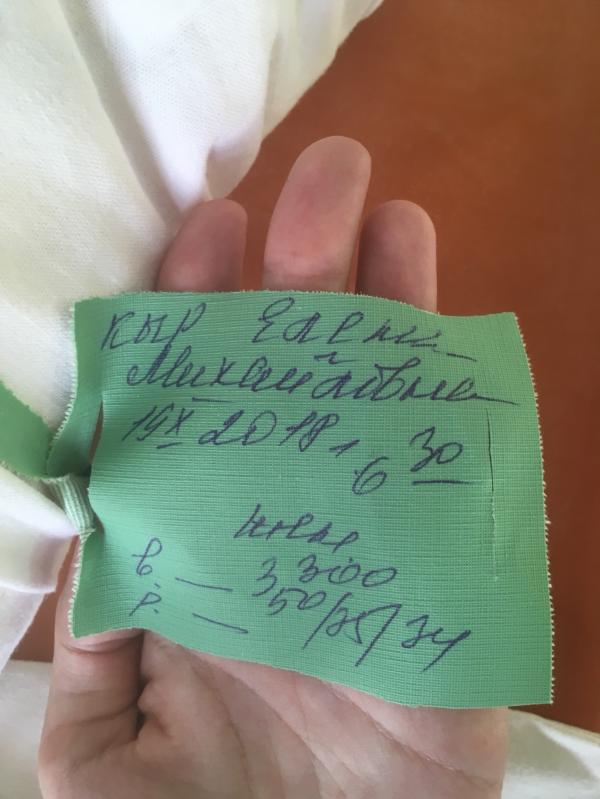 Кыр Елена
Михайловна
19 X 2018 г 6 30
в. — 3 300
р. — 50/35/34